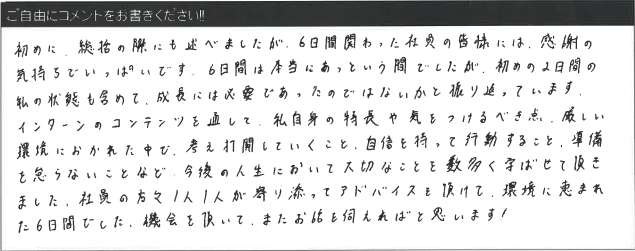 ご自由にコメントをお書きください!!
初めに、総括の際にも述べましたが、6日間関わった社員の皆様には、感謝の
気持ちでいっぱいです。6日間は本当にあっという間でしたが、初めの2日間の
私の状態も含めて、成長には必要であったのではないかと振り返っています。
インターンのコンテンツを通して、私自身の特長や気をつけるべき点、厳しい
環境におかれた中で、考え打開していくこと、自信を持って行動すること、準備
を怠らないことなど、今後の人生において大切なことを数多く学ばせて頂き
ました。社員の方々1人1人が寄り添ってアドバイスを頂けて、環境に恵まれ
た6日間でした。機会を頂いて、またお話を伺えればと思います!